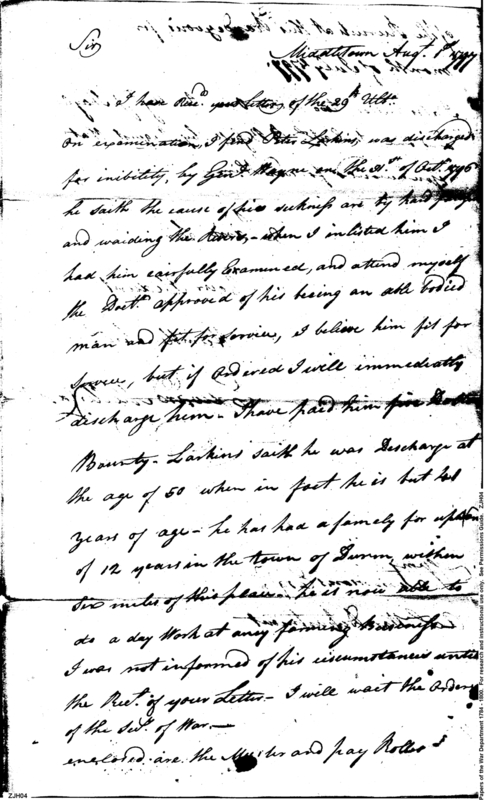 Sir
Middletown Augt. 1st 1797
I have Recd. your letter, of the 29th Ulto.
on examination, I find Peter Larkins, was discharged
for inibility, by Genl. Wayne on the 31st of Octr. 1796
he saith the cause of his sickness are by hard
and waiding the Rivers, - when I inlisted him I
had him cairfully Examened, and attend myself
the Doctr. approved of his being an able bodied
man and fit for service, I believe him fit for
service, but if ordered I will immediatly
discharge him - I have paid him five
Bounty - Larkins saith he was Discharge at
the age of 50 when in fact he is but
years of age - he has had a famely for
of 12 years in the town of Durem, within
Six miles of this place - he is now able to
do a day Work at any farming Business
I was not informed of his circumstances until
the Rect. of your Letter - I will wait the orders
of the Secy. of War. -
enclosed are the Muster and pay Rolles
ZJH04
Papers of the War Department 1784 - 1800. For research and instructional use only. See Permissions Guide. ZJH04